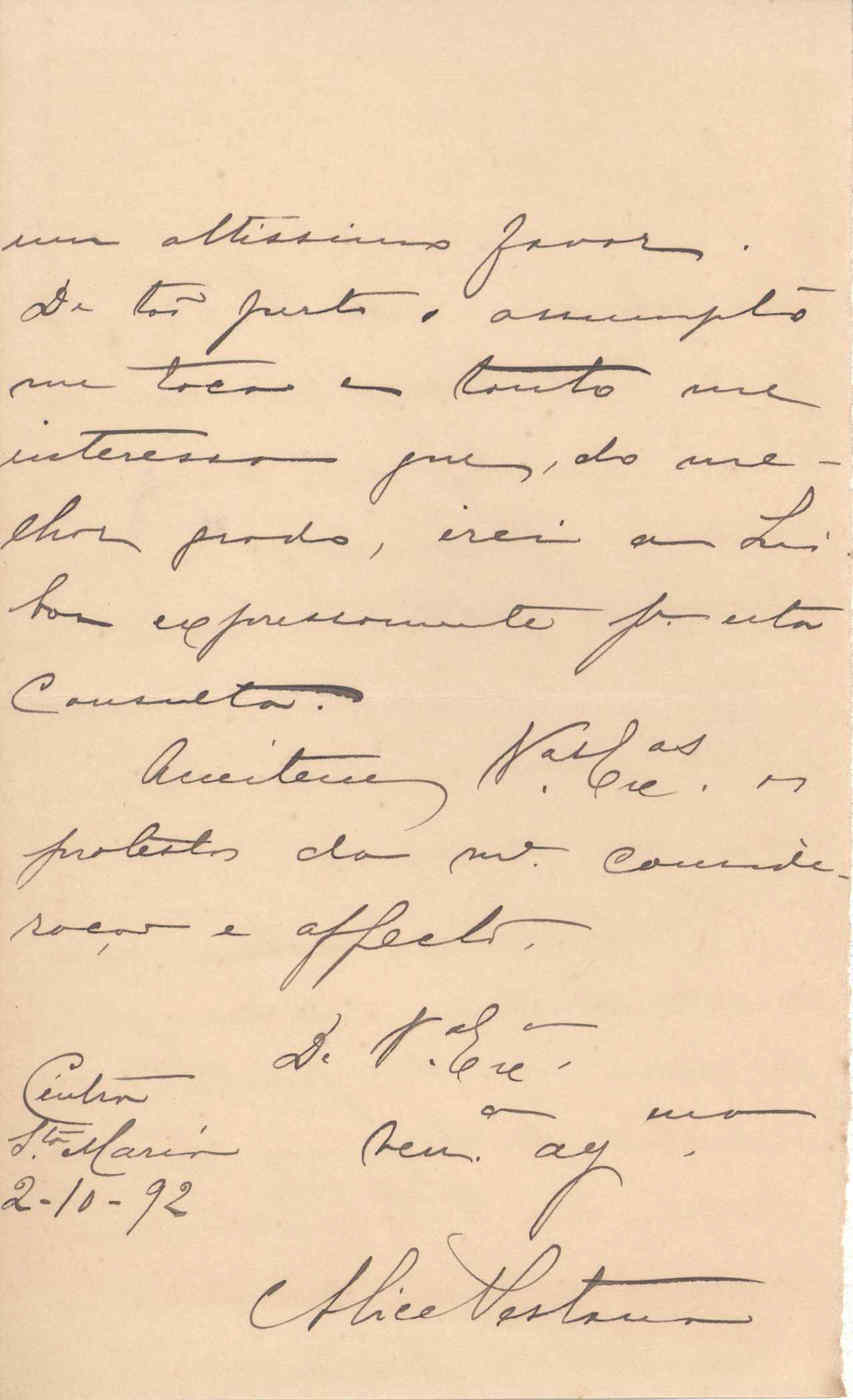 um altissimo favor.
De tão perto o assumpto
me toca e tanto me
interessa que, do me-
lhor grado, irei a Lis
boa expressamente p.ª esta
Consulta.
Acceitem V.as Ex.as os
protestos da m.ª conside-
ração e affecto.
De V.a Ex.a
Cintra
S.ta Maria
2-10-92
ven.a
Alice Pestana